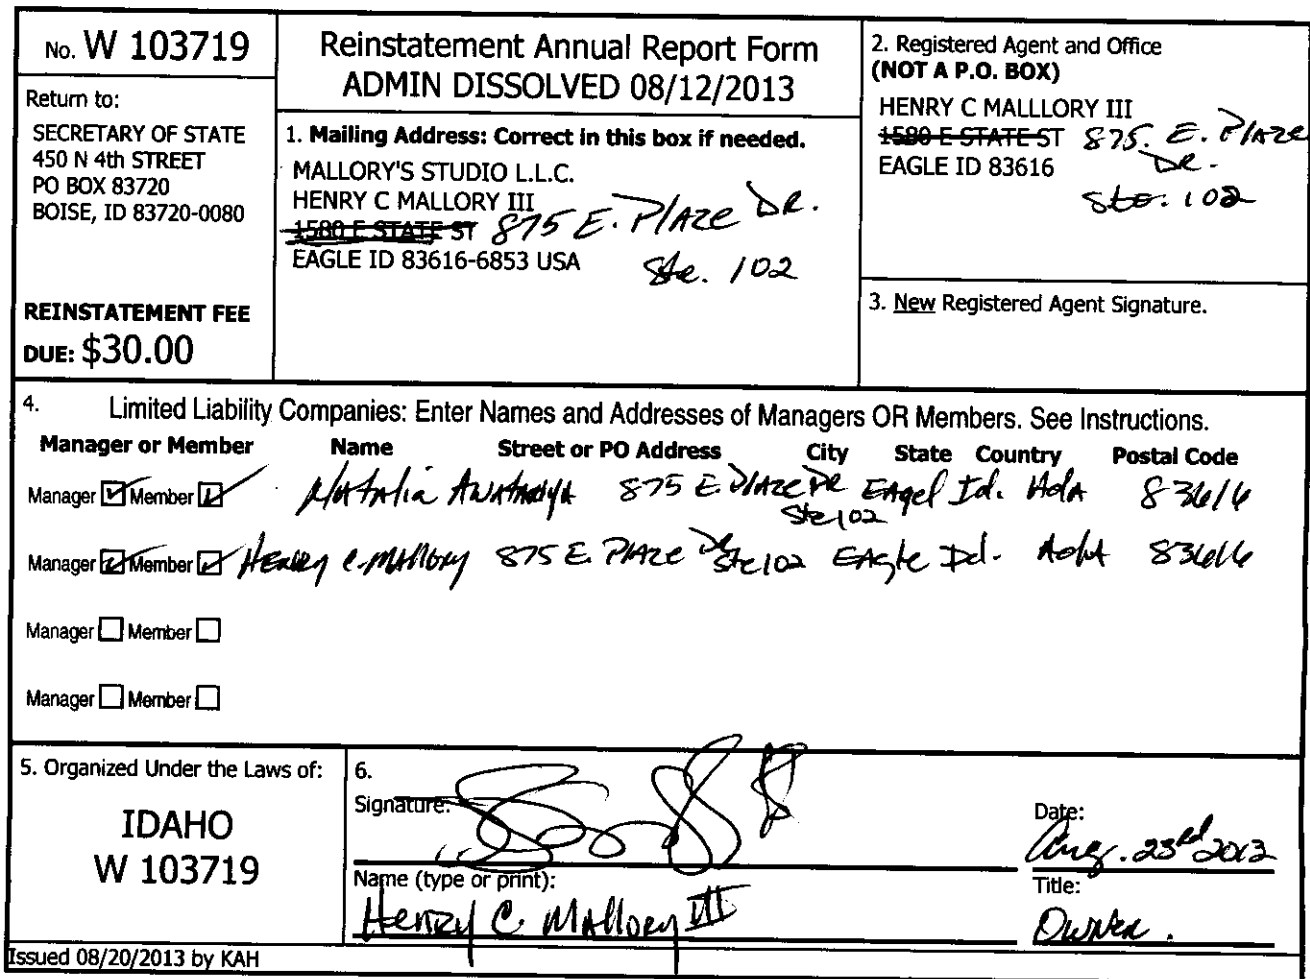 No. W 103719
Return to:
SECRETARY OF STATE
450 N 4th STREET
PO BOX 83720
BOISE, ID 83720-0080
REINSTATEMENT FEE
DUE: $30.00
Reinstatement Annual Report Form
ADMIN DISSOLVED 08/12/2013
1. Mailing Address: Correct in this box if needed.
MALLORY'S STUDIO L.L.C.
HENRY C MALLORY III
1580 E STATE ST 875 E. Plaze DR.
Ste. 102
EAGLE ID 83616-6853 USA
2. Registered Agent and Office
(NOT A P.O. BOX)
HENRY C MALLLORY III
1580 E STATE ST 875. E. Plaze
DR.
Ste. 102
EAGLE ID 83616
3. New Registered Agent Signature.
4. Limited Liability Companies: Enter Names and Addresses of Managers OR Members. See Instructions.
Manager or Member Name Street or PO Address City State Country Postal Code
Manager Member Natalia 875 E. Plaze DR Eagel Id. Ada 83616
Ste 102
Manager Member Henry C. Mallory 875 E. Plaze Dr Ste 102 Eagle Id. Ada 83616
Manager Member
Manager Member
5. Organized Under the Laws of:
IDAHO
W 103719
6.
Signature:
Date:
Aug. 23rd 2013
Name (type or print):
Henry C. Mallory III
Title:
Owner.
Issued 08/20/2013 by KAH